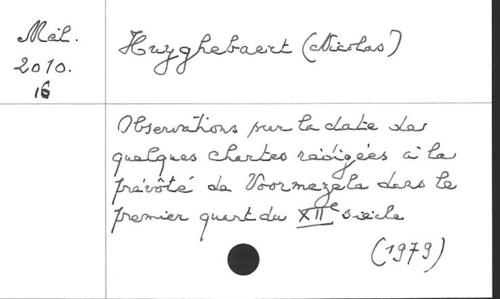 Mél.
2010.
16
Huyghebaert (Nicolas)
Observations sur la date de
quelques chartes rédigées à la
prévôté de Voormezele dans le
premier quart du XIIe siècle
(1979)